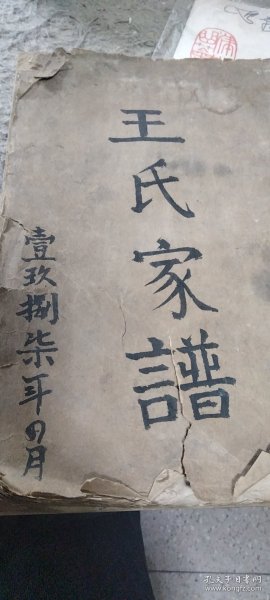 王氏家譜
壹玖捌柒年四月
孔夫子旧书网
www.kongfz.com